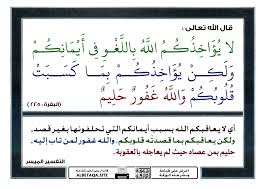 قال الله تعالى :
لَا يُؤَاخِذُكُمُ اللَّهُ بِاللَّغْوِ فِي أَيْمَانِكُمْ
وَلَٰكِن يُؤَاخِذُكُم بِمَا كَسَبَتْ
قُلُوبُكُمْ وَاللَّهُ غَفُورٌ حَلِيمٌ
(البقرة : ٢٢٥)
أي لا يعاقبكم الله بسبب أيمانكم التي تحلفونها بغير قصد،
ولكن يعاقبكم بما قصدته قلوبكم. والله غفور لمن تاب إليه،
حليم بمن عصاه حيث لم يعاجله بالعقوبة.
التفسير الميسر
ALBETAQA.SITE